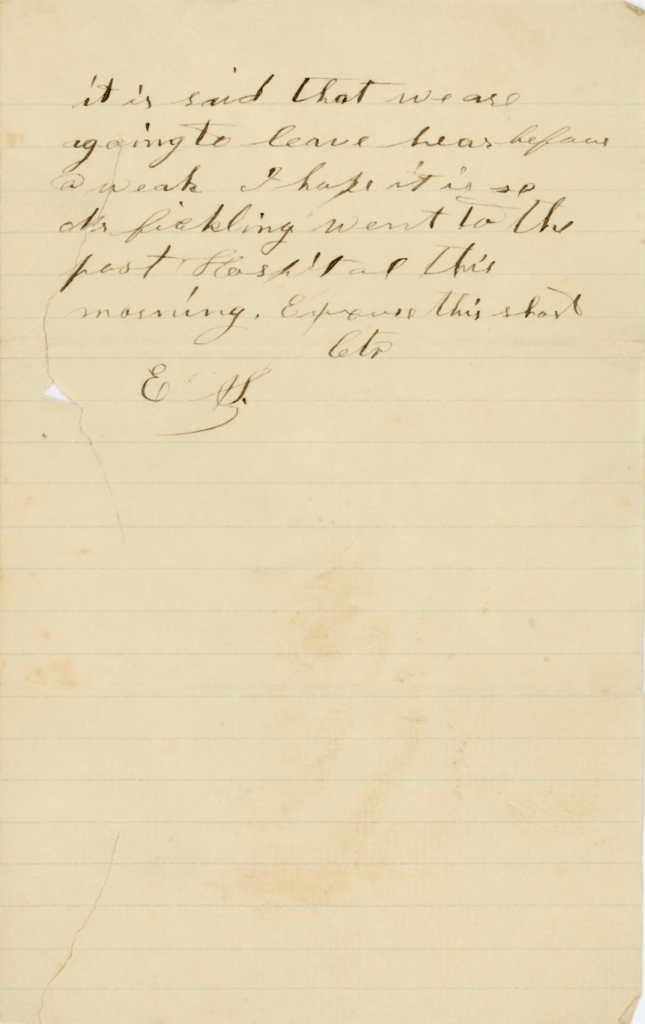 it is said that we are
agoing to leave hear before
a weak I hope it is so
Mr fickling went to the
post Hospital this
morning. Excuse this short
letr
E H.